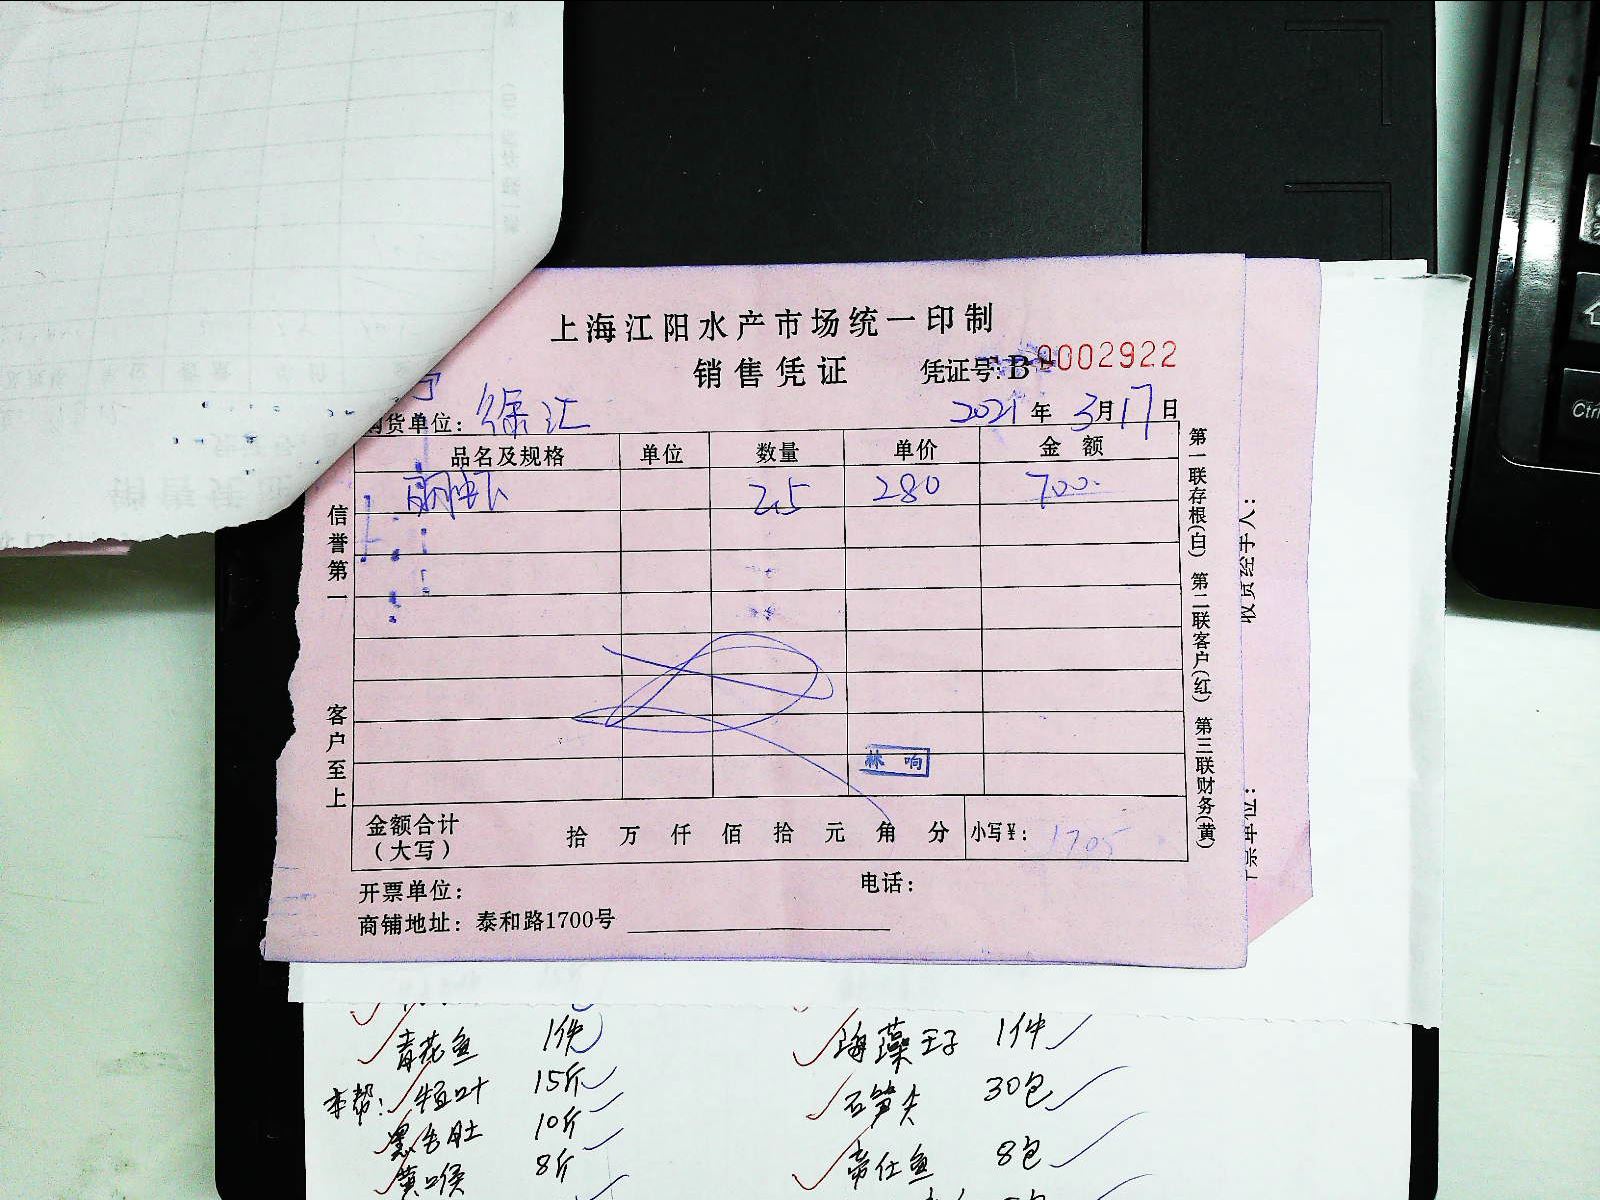 上海江阳水产市场统一印制
销售凭证 凭证号:B 0002922
购货单位: 徐汇 2021年3月17日
品名及规格 单位 数量 单价 金额
2.5 280 700.
信誉第一
客户至上
林响
金额合计(大写) 拾 万 仟 佰 拾 元 角 分 小写¥: 1705
开票单位: 电话:
商铺地址: 泰和路1700号
第一联存根(白) 第二联客户(红) 第三联财务(黄)
收货经手人:
开票单位:
青花鱼 1件 海藻王子 1件
本帮: 15斤 石笋尖 30包
10斤 帝仕鱼 8包
黄喉 8斤
Ctrl